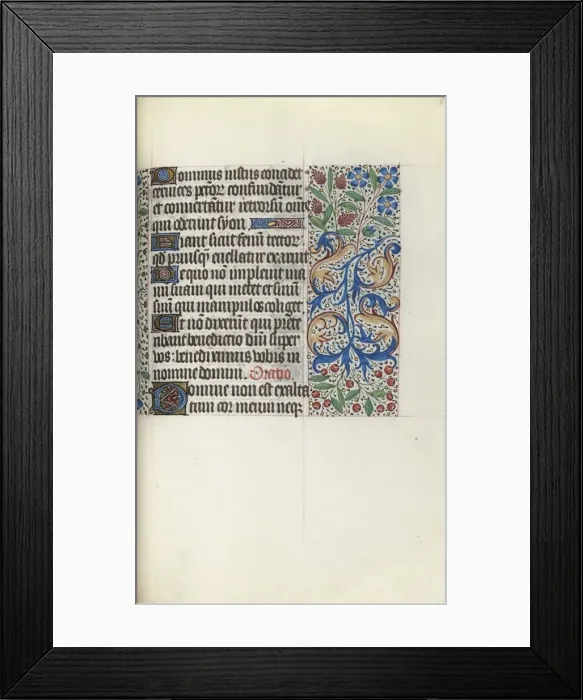 Dominus iustus concidet
cervices pctor confundātur
et convertantur retrorsū om̄s
qui oderunt syon
Fiant sicut fenū tector
qd priusq̄ evellatur exaruit
De quo nō implevit ma
num suam qui metet et sinū
suū qui manipulos colliget
Et nō dixerūt qui prete
ribant benedictio dn̄i super
vos: benediximus vobis in
nomine domini. Oratio
Domine non est exalta
tum cor meum neqз